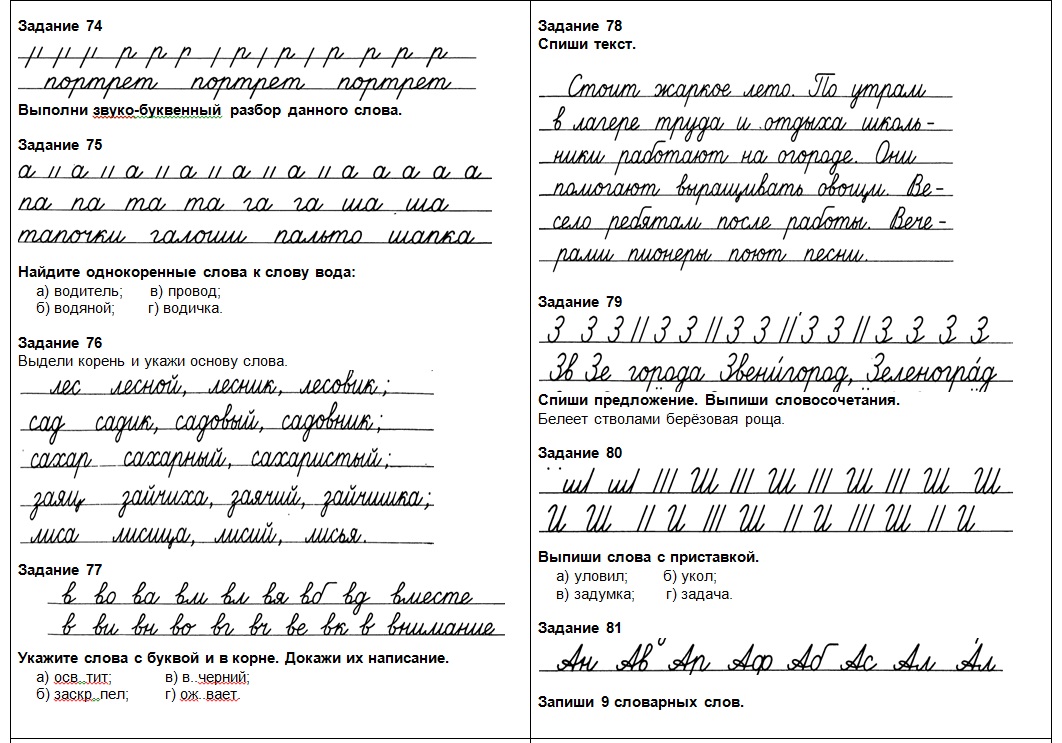 Задание 74
р р р р р р р р р
портрет портрет портрет
Выполни звуко-буквенный разбор данного слова.
Задание 75
а а а а а а а а а а а
па па та та га га ша ша
тапочки галоши пальто шапка
Найдите однокоренные слова к слову вода:
а) водитель; в) провод;
б) водяной; г) водичка.
Задание 76
Выдели корень и укажи основу слова.
лес лесной, лесник, лесовик;
сад садик, садовый, садовник;
сахар сахарный, сахаристый;
заяц зайчиха, заячий, зайчишка;
лиса лисица, лисий, лисья.
Задание 77
в во ва вм вл вя вб вд вместе
в ви вн во вг вч ве вк в внимание
Укажите слова с буквой и в корне. Докажи их написание.
а) осв..тит; в) в..черний;
б) заскр..пел; г) ож..вает.
Задание 78
Спиши текст.
Стоит жаркое лето. По утрам
в лагере труда и отдыха школь-
ники работают на огороде. Они
помогают выращивать овощи. Ве-
село ребятам после работы. Вече-
рами пионеры поют песни.
Задание 79
З З З З З З З З З З З З З
Зв Зе города Звени́город, Зеленогра́д
Спиши предложение. Выпиши словосочетания.
Белеет стволами берёзовая роща.
Задание 80
ш ш Ш Ш Ш Ш Ш
И Ш И Ш И Ш И
Выпиши слова с приставкой.
а) уловил; б) укол;
в) задумка; г) задача.
Задание 81
Ан Ав Ар Аф Аб Ас Ал Ал
Запиши 9 словарных слов.